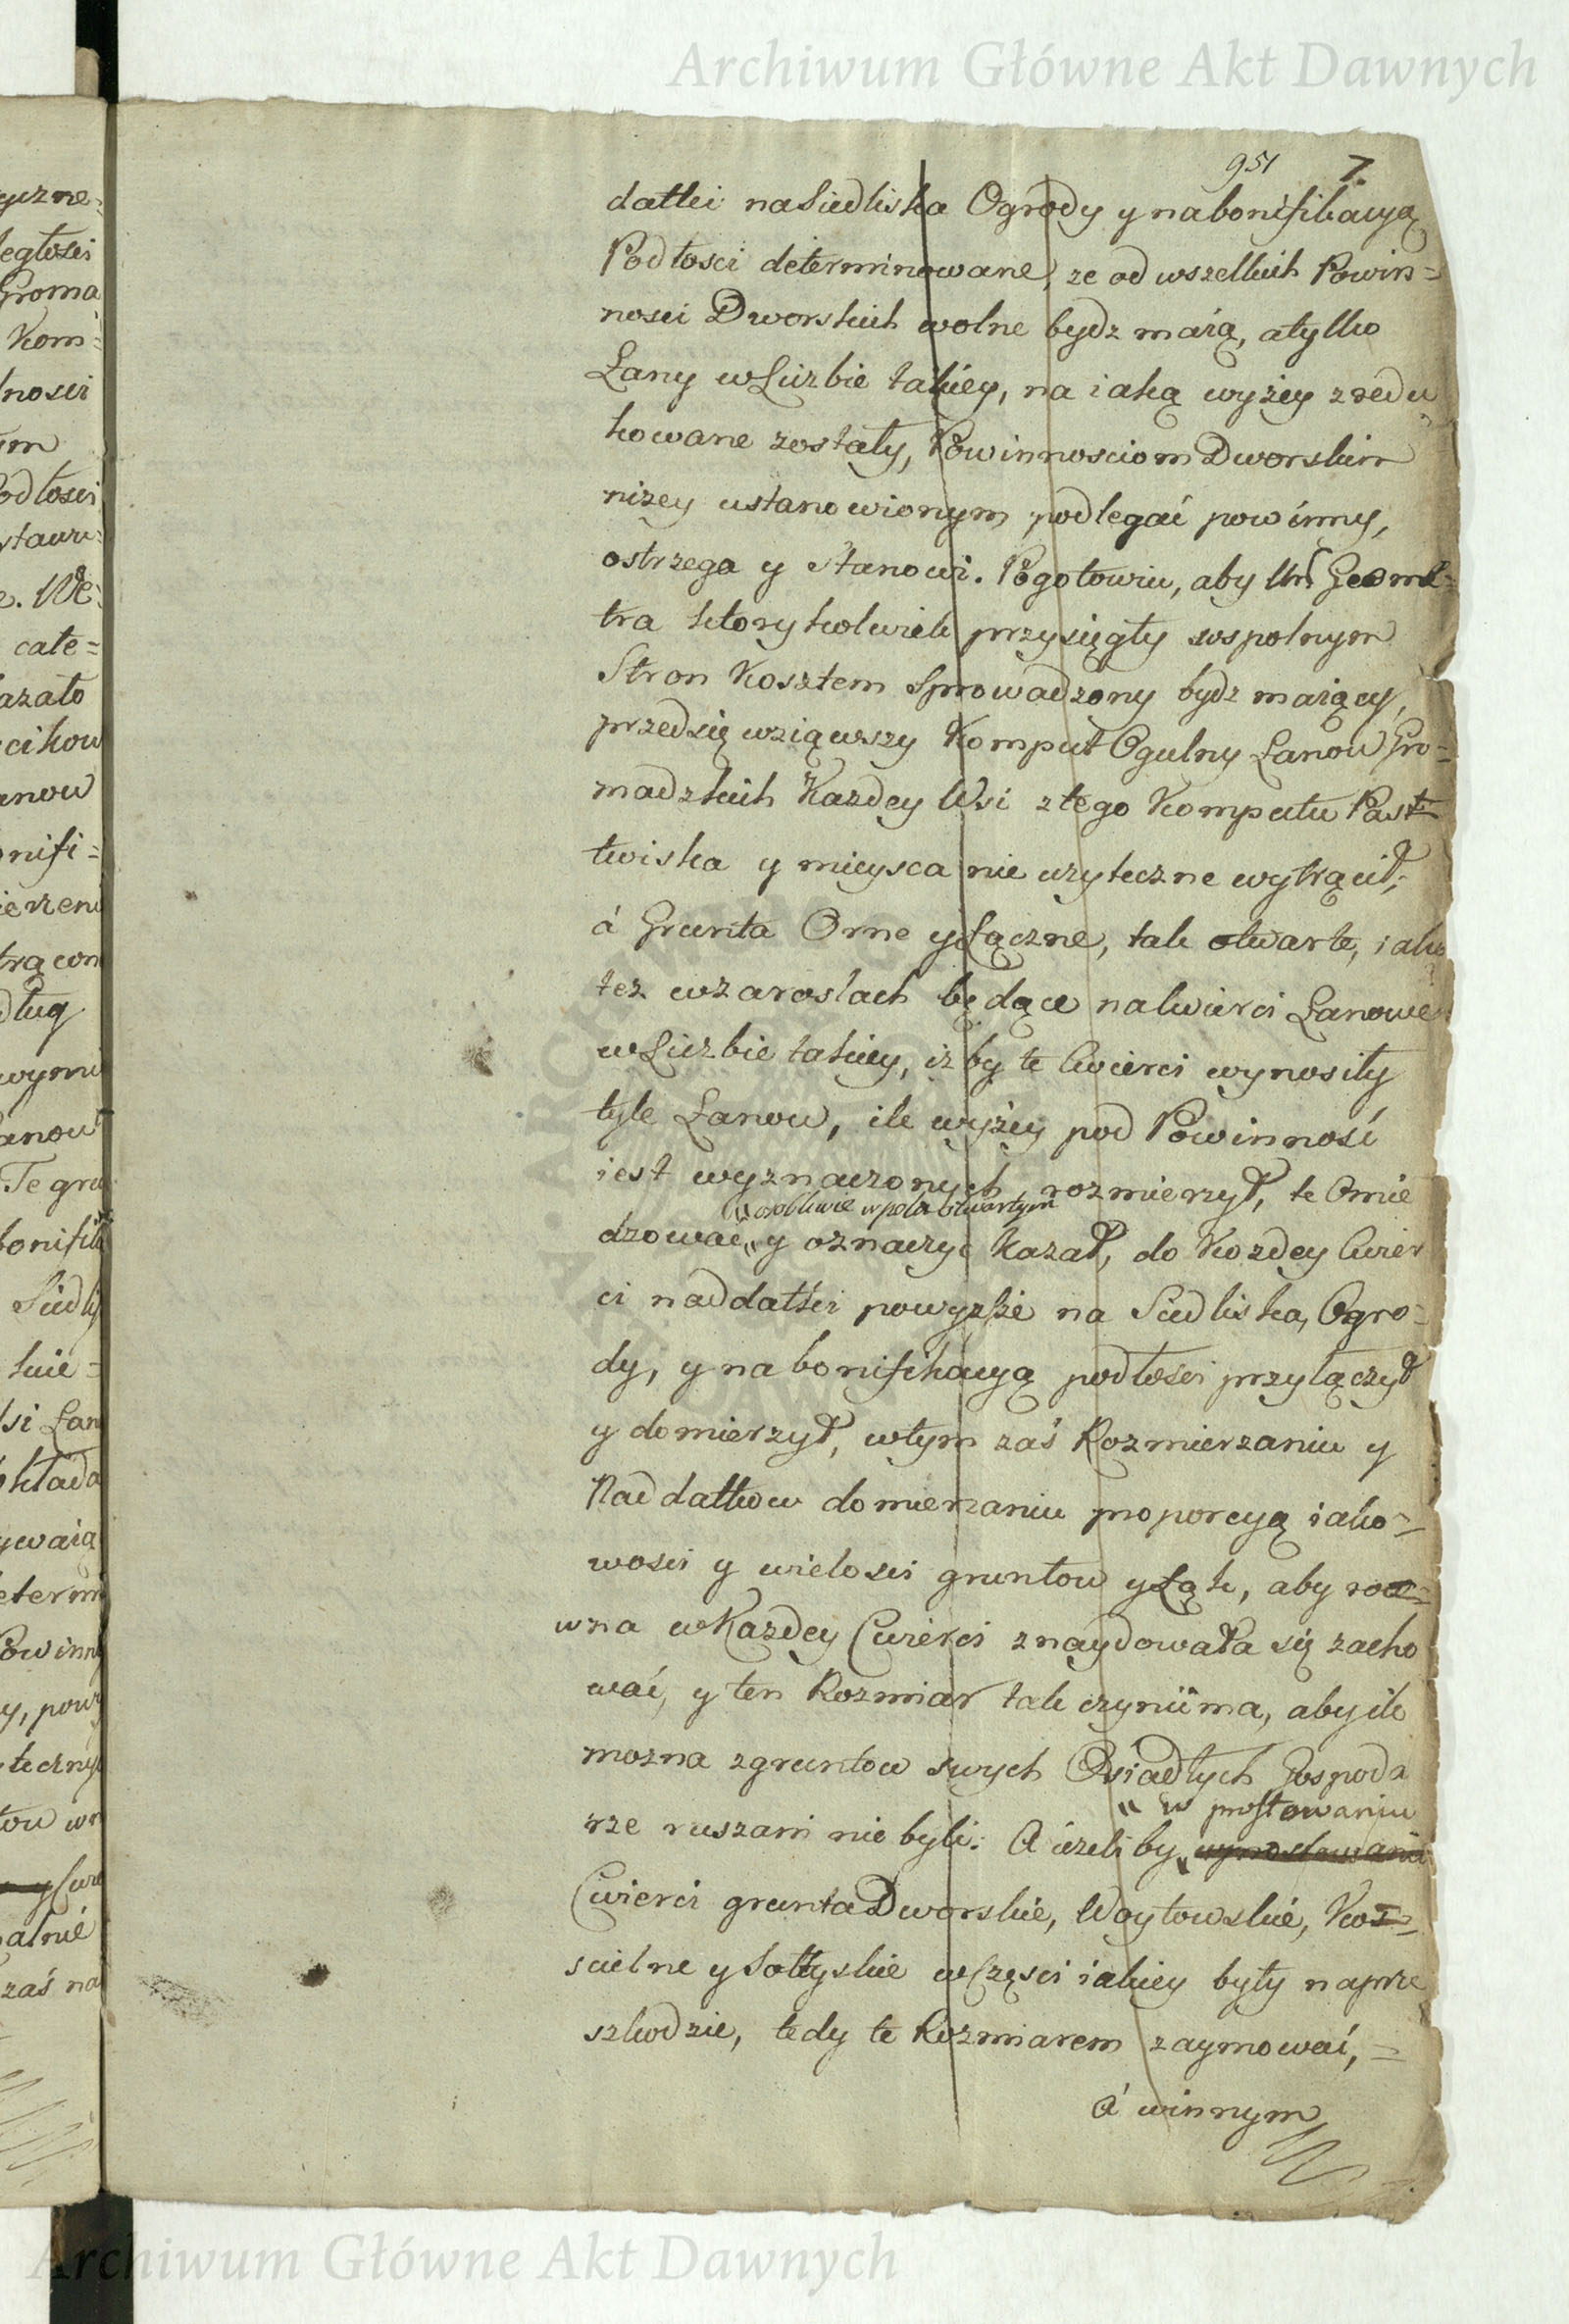 Archiwum Główne Akt Dawnych
951 7.
datki na Siedliska Ogrody y na bonifikacyą
Podłosci determinowane, ze od wszelkich Powin=
nosci Dworskich wolne bydz maią, a tylko
Łany w Liczbie takiey, na iaką wyżey zredu
kowane zostały, Powinnosciom Dworskim
niżey ustanowionym podlegać powinny,
ostrzega y Stanowi. Pogotowiu, aby Ur. Geome=
tra ktorykolwiek przysięgły wspolnym
Stron Kosztem Sprowadzony bydz maiący,
przedsięwziąwszy Komput Ogulny Łanow Gro=
madzkich Kazdey Wsi z tego Komputu Past
twiska y mieysca nie uzyteczne wytrącił,
á Grunta Orne y Łączne, tak otwarte, iako
tez w zaroslach będące na Cwierci Łanowe
w Liczbie takiey, iz by te Cwierci wynosiły
tyle Łanow, ile wyżey pod Powinność
iest wyznaczonych rozmierzył, te Omie
„osobliwie w polu otwartym
dzować „ y oznaczyć kazał, do Kozdey Cwier
ci naddatki powyższe na Siedliska, Ogro=
dy, y na bonifikacyą podłości przyłączył
y domierzył, w tym zaś Rozmierzaniu y
Naddatkow domierzaniu proporcyą iako=
wosci y wielosci gruntow y Łąk, aby ro
wna w Kazdey Cwierci znaydowała się zacho
wać, y ten Rozmiar tak czynić ma, aby ile
mozna z gruntow swych Osiadłych Gospoda
rze ruszani nie byli: A iezeli by „
„ w prostowaniu
Cwierci grunta Dworskie, Woytowskie, Kos=
cielne y Sołtyskie w Części iakiey były na prze
szkodzie, tedy te Rozmiarem zaymować, =
á w innym
yczne=
egłosci
Groma
Kom=
lnosci
ym
odłosci
cate=
azało
cikow
anow
onifi=
trącon
dług
wymi
Łanow
Te gru
bonifika
Siedli
kie=
Łan
kłada
ywaią
etermi
Powinn
y, pow
tow
alnié
zaś na
Archiwum Główne Akt Dawnych